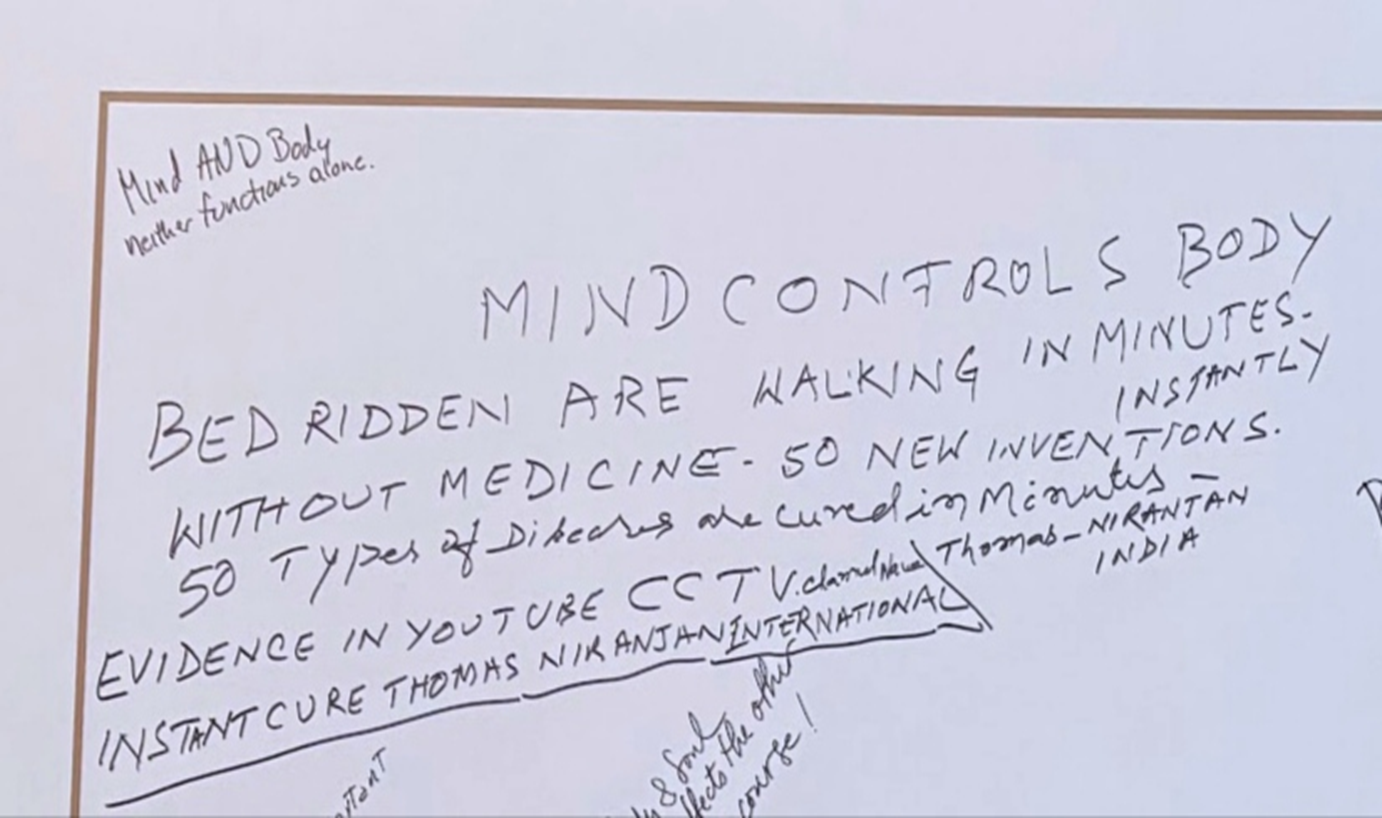 Mind AND Body
neither functions alone.
MIND CONTROLS BODY
BED RIDDEN ARE WALKING IN MINUTES-
INSTANTLY
WITHOUT MEDICINE - 50 NEW INVENTIONS.
50 Types of Diseases are cured in Minutes -
Thomas - NIRANTAN
INDIA
EVIDENCE IN YOUTUBE CCTV. channel
INSTANT CURE THOMAS NIRANJAN INTERNATIONAL
& Soul
the other
course!